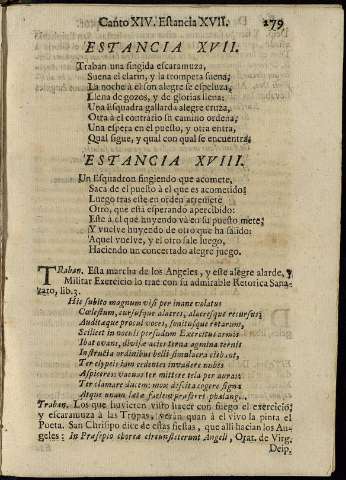 Canto XIV. Estancia XVII. 279
ESTANCIA XVII.
Traban una fingida escaramuza,
Suena el clarin, y la trompeta suena;
La noche à el son alegre se espeluza,
Llena de gozos, y de glorias llena:
Una Esquadra gallarda alegre cruza,
Otra à el contrario su camino ordena;
Una espera en el puesto, y otra entra,
Qual sigue, y qual con qual se encuentra.
ESTANCIA XVIII.
Un Esquadron fingiendo que acomete,
Saca de el puesto à el que es acometido;
Luego tras este en orden arremete
Otro, que está esperando apercibido:
Este à el que huyendo vá en su puesto mete;
Y vuelve huyendo de otro que ha salido:
Aquel vuelve, y el otro sale luego,
Haciendo un concertado alegre juego.
Traban. Esta marcha de los Angeles, y este alegre alarde, y
Militar Exercicio lo trae con su admirable Retorica Sana-
zaro, lib. 3.
Hic subito magnum visi per inane volatus
Cœlestium, cursusque alacres, alacresque recursus;
Auditaque procul voces, sonitusque rotarum,
Scilicet in
Ibat ovans, divisæ acies terna agmina ternis
Instructa ordinibus belli simulacra ciebant,
Ter clypeis iam cedentes invadere nubes
Aspiceres: vacuas ter mittere tela per auras:
Ter clamare ducem: mox
Atque unam latæ faciem præferre phalangi.
Traban. Los que huvieren visto hacer con fuego el exercicio,
y escaramuza à las Tropas, verán quan à el vivo la pinta el
Poeta. San Chrisipo dice de estas fiestas, que alli hacian los An-
geles: In Præsepio choreæ circunsisterunt Angeli, Orat. de Virg.
Deip.